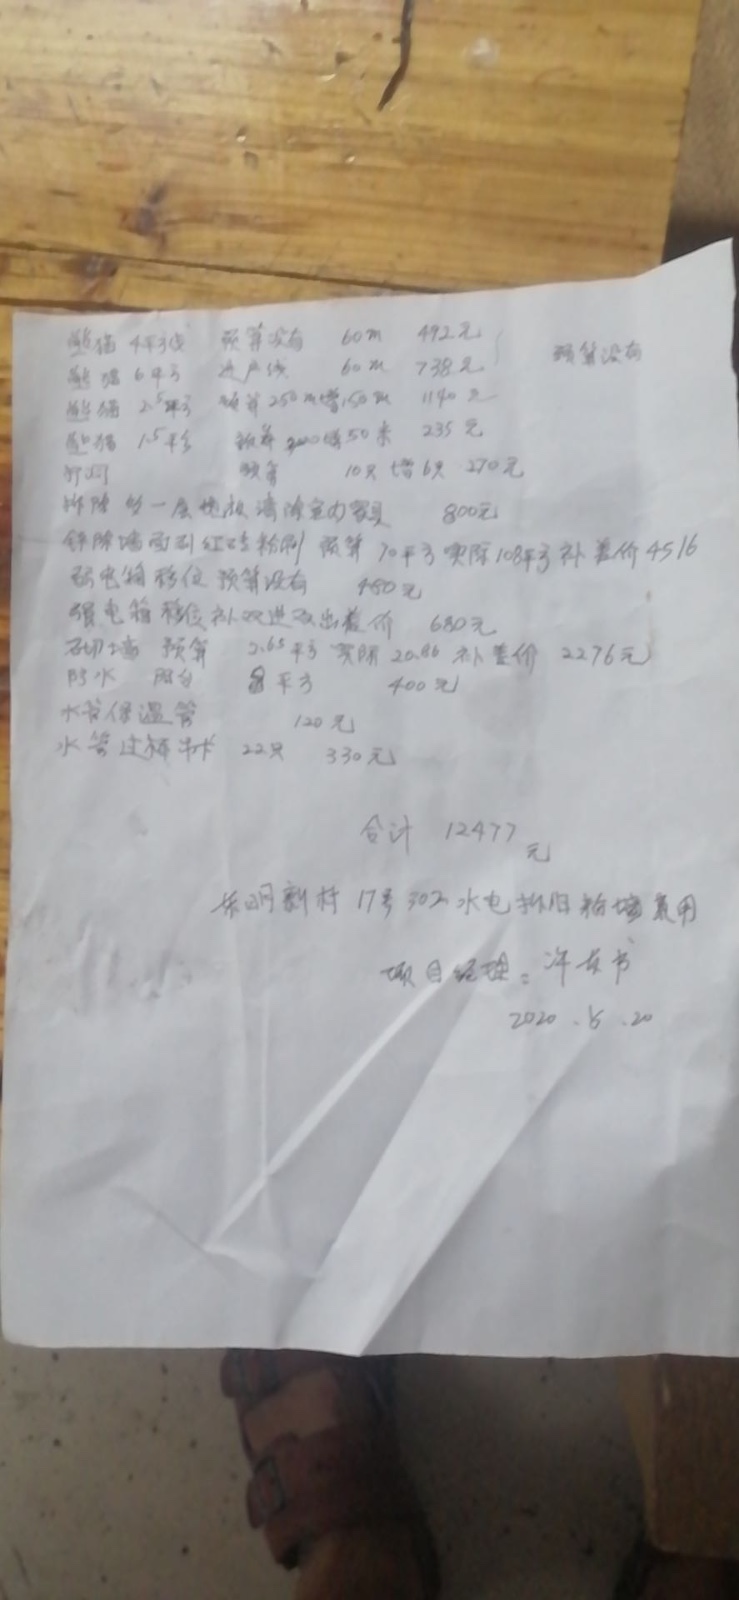 熊猫 4平方线 预算没有 60m 492元 预算没有
熊猫 6平方 进户线 60m 738元
熊猫 2.5平方 预算250m增150m 1140元
熊猫 1.5平方 预算200增50米 235元
预算 10只 增6只 270元
拆除 地板 清除室内家具 800元
铲除墙面到红砖粉刷 预算 70平方 实际108平方 补差价 4516
弱电箱移位 预算没有 480元
强电箱移位补双进双出差价 680元
砌墙 预算 2.65平方 实际 20.86 补差价 2276元
防水 阳台 8平方 400元
水管保温管 120元
水管过桥 22只 330元
合计 12477元
新村 17号 302 水电拆旧粉墙费用
项目经理：许
2020.5.20